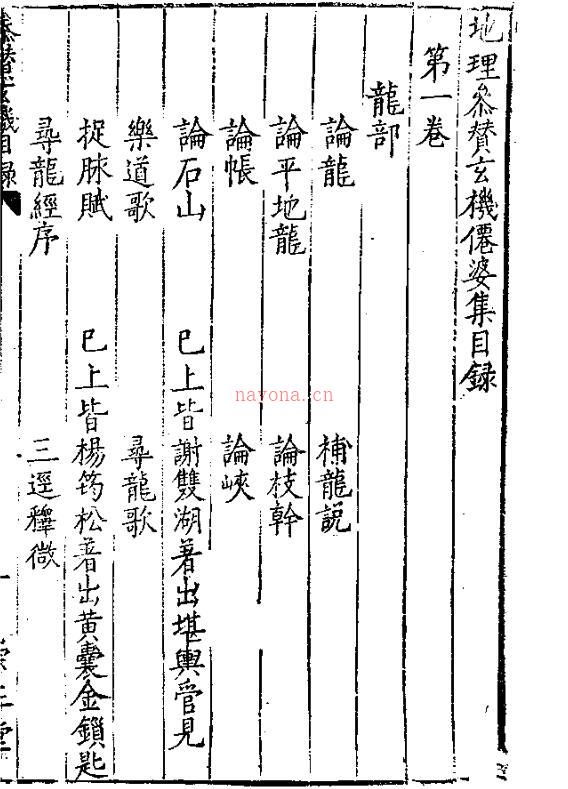 地理叅贊玄機僊婆集目録
第一卷
龍部
論龍 補龍說
論平地龍 論枝幹
論帳 論峽
論石山 已上皆謝雙湖著出堪輿管見
樂道歌 尋龍歌
捉脉賦 已上皆楊筠松著出黄囊金鎖匙
尋龍經序 三逕釋微
nayona.cn